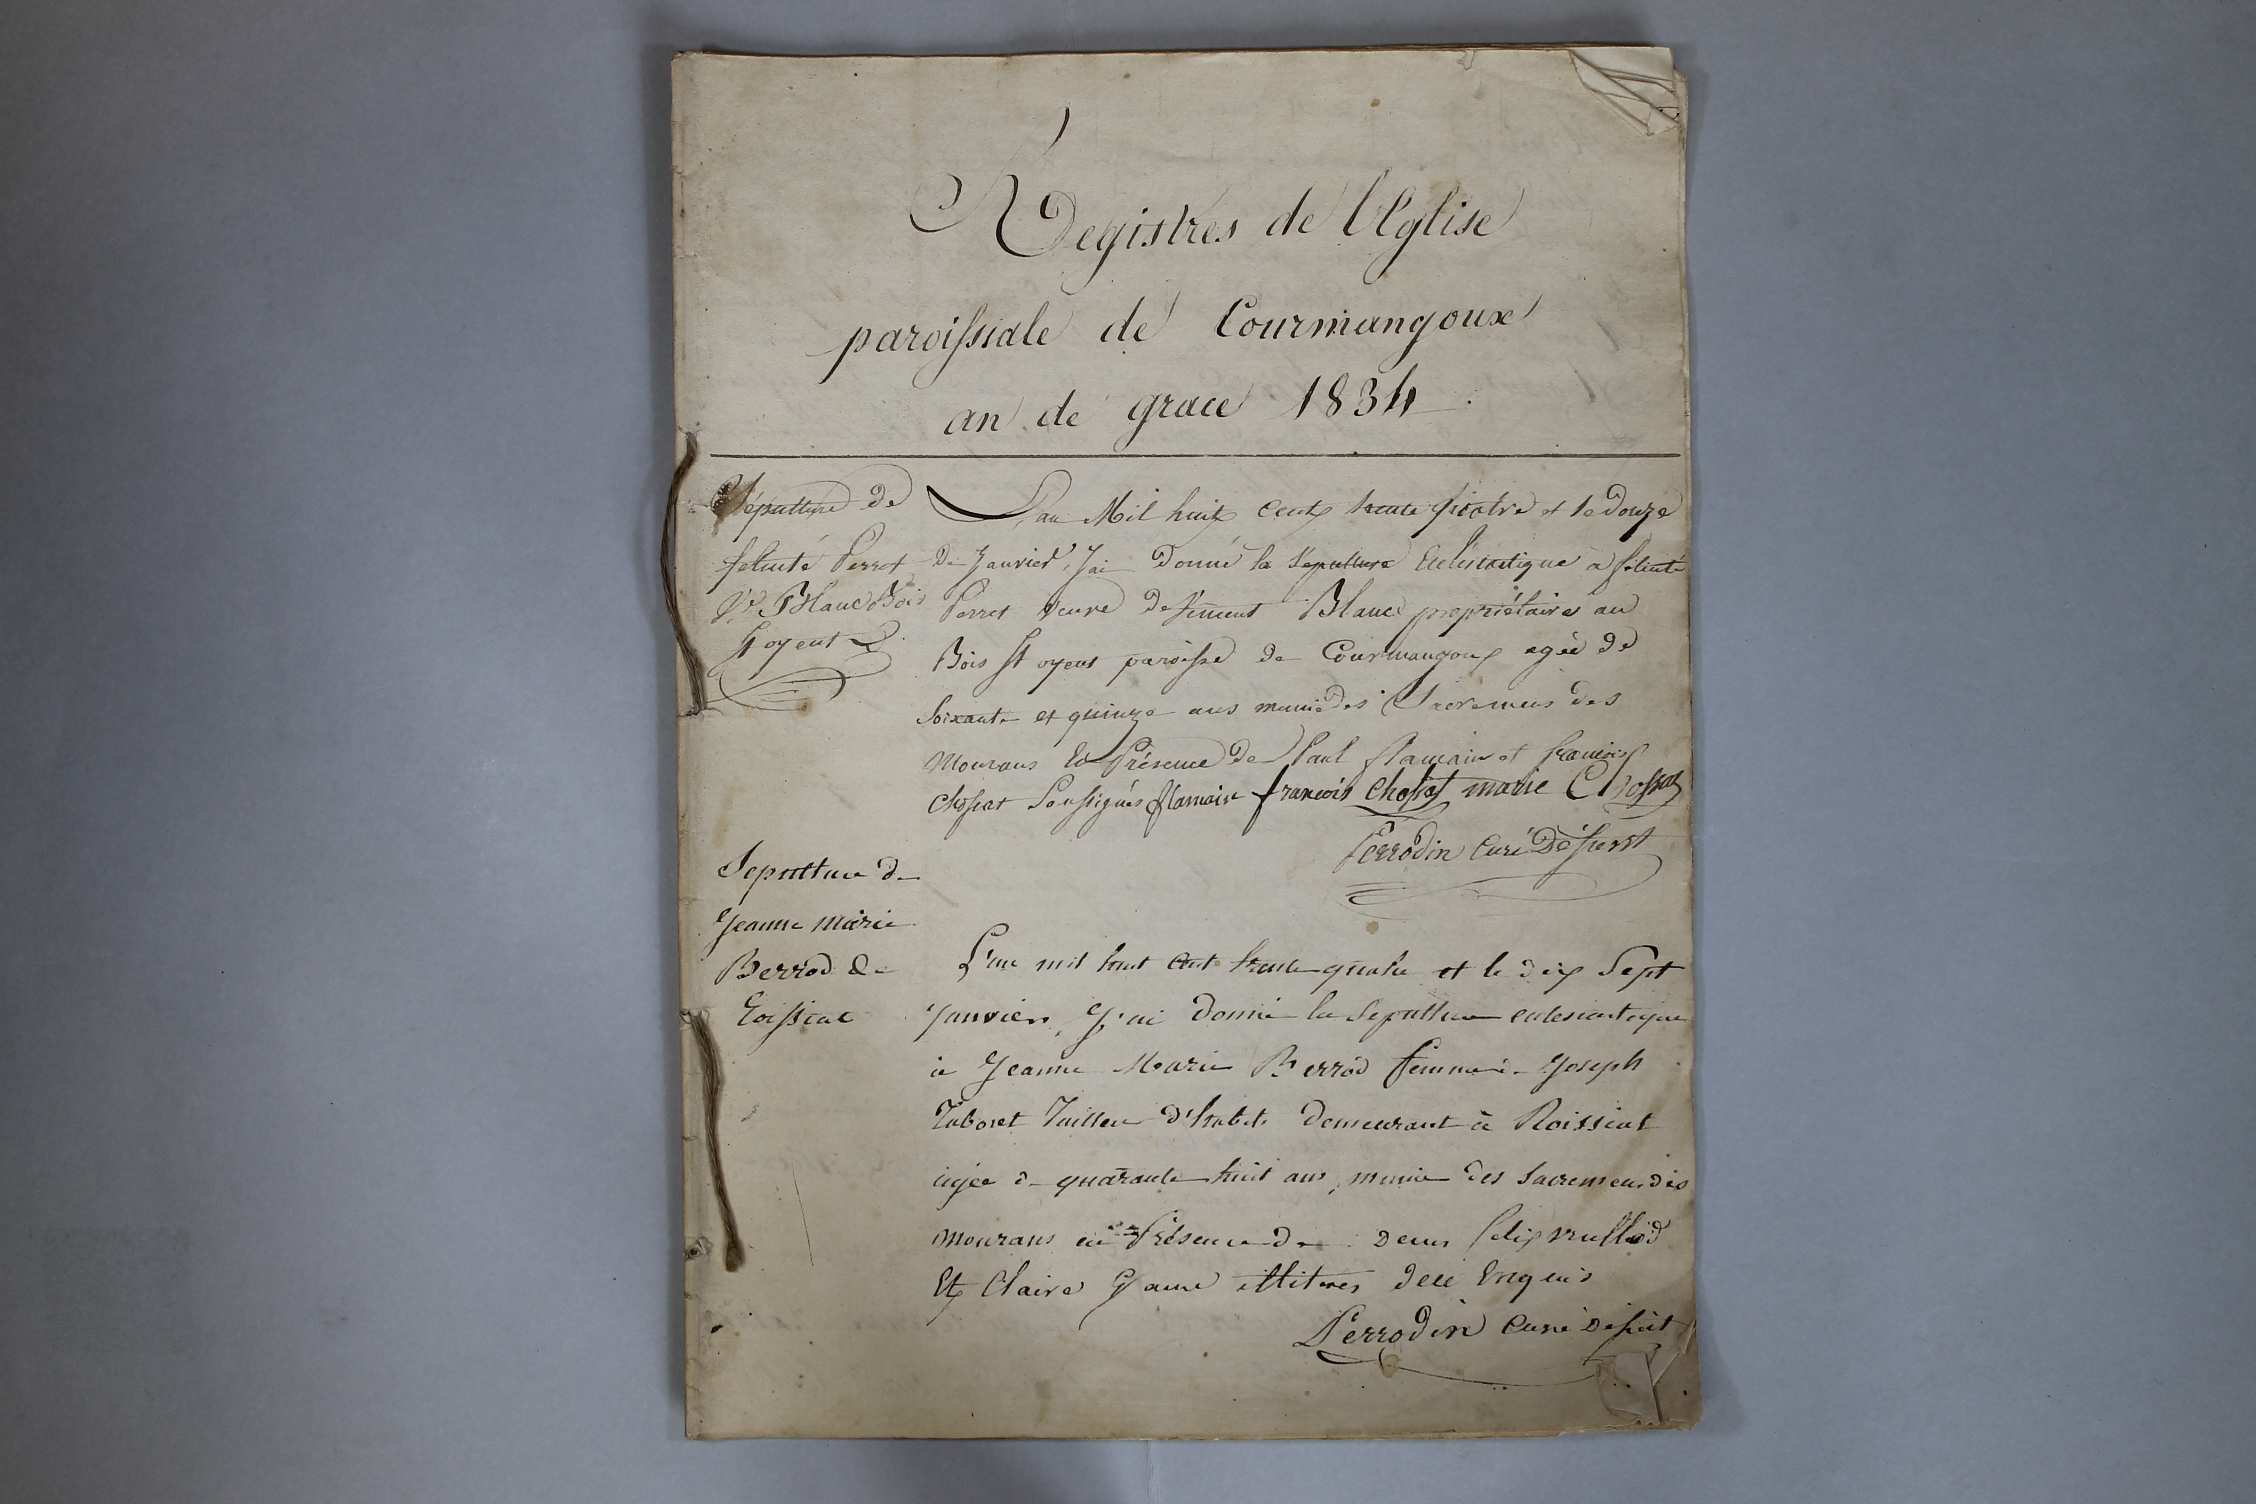 Registres de l'Eglise
paroissiale de Courmangoux
an de grace 1834
Sépulture de
felicité Perret
Ve Blanc Bois
St oyent
L'an Mil huit cent trente quatre et le Douze
De Janvier, J'ai Donné la sepulture Eclésiastique a felicité
Perret veuve de Blanc propriétaire au
Bois St oyent paroisse de Courmangoux agée de
Soixante et quinze ans munie des Sacremens des
Mourans En Présence de Paul flamain et francois
Chossat Soussignés flamain francois Chossat marie Chossat
Perrodin Curé Déssert
Sepulture de
Jeanne Marie
Berrod de
Roissiat
L'an mil huit cent trente quatre et le dix Sept
Janvier, J'ai donné la Sepulture eclesiastique
à Jeanne Marie Berrod femme de Joseph
Taboret Tailleur d'habits demeurant à Roissiat
agée de quarante huit ans, munie des Sacremens des
Mourans en Présence de Felix
Et Claire illitrés de ce Enquis
Perrodin Curé Déssert